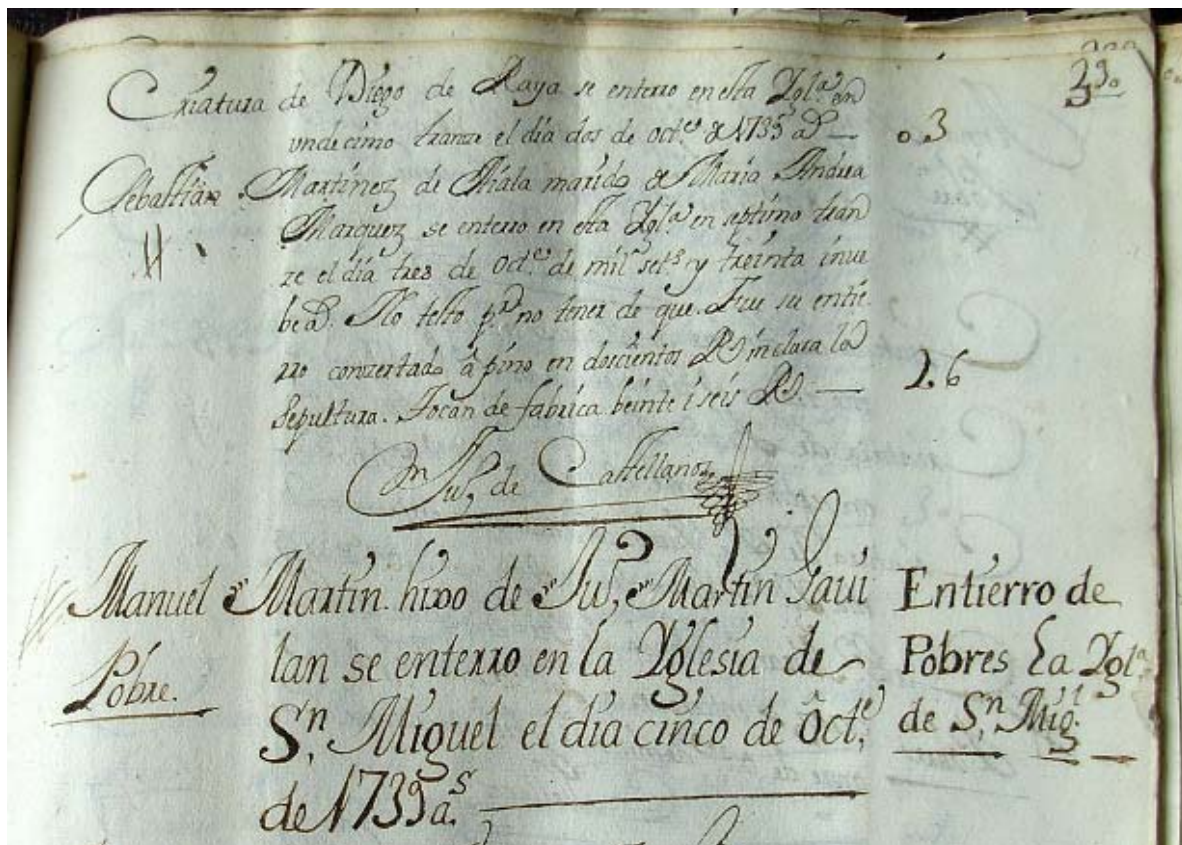 230
Criatura de Diego de Raya se enterro en esta Ygl.ª en
undecimo tranze el dia dos de oct.e de 1739 a.s — 0.3
Sebastian Martinez de Aiala marido de Maria Andrea
Marquez se enterro en esta Ygl.ª en septimo tran
ze el dia tres de oct.e de mil set.s y treinta inue
be a.s. No testo p.r no tener de que. Fue su entie
rro conzertado a pino en doscientos R.s inclusa la
Sepultura. Tocan de fabrica beinte i seis R.s — 26
Ju.º de Castellanos
Manuel Martin hixo de Ju.º Martin Gaui
Pobre.
lan se enterro en la Yglesia de
S.n Miguel el dia cinco de Oct.e
de 1739 a.s
Entierro de
Pobres La Ygl.ª
de S.n Mig.l